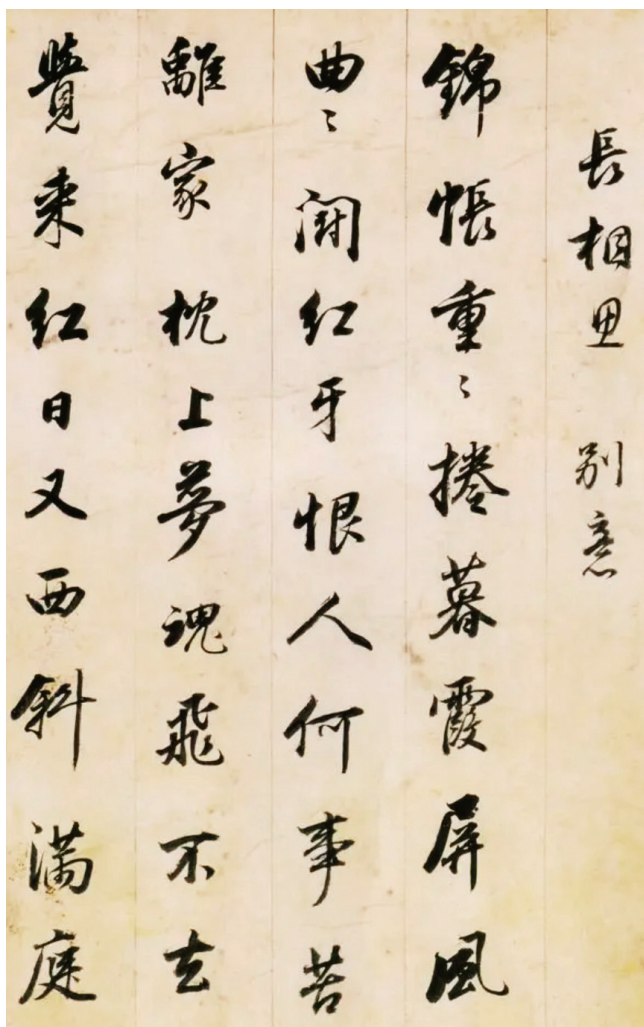 長相思 別意
錦帳重〻捲暮霞屏風
曲〻鬭紅牙恨人何事苦
離家枕上夢魂飛不去
覺来紅日又西斜滿庭